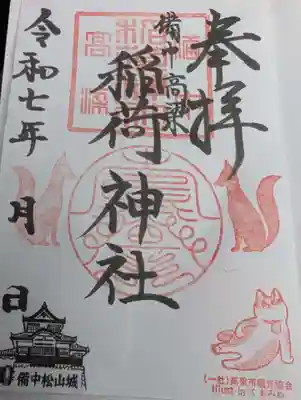 奉拝
備中高梁
稲荷神社
令和七年 月 日
備中松山城
(一社)高梁市観光協会